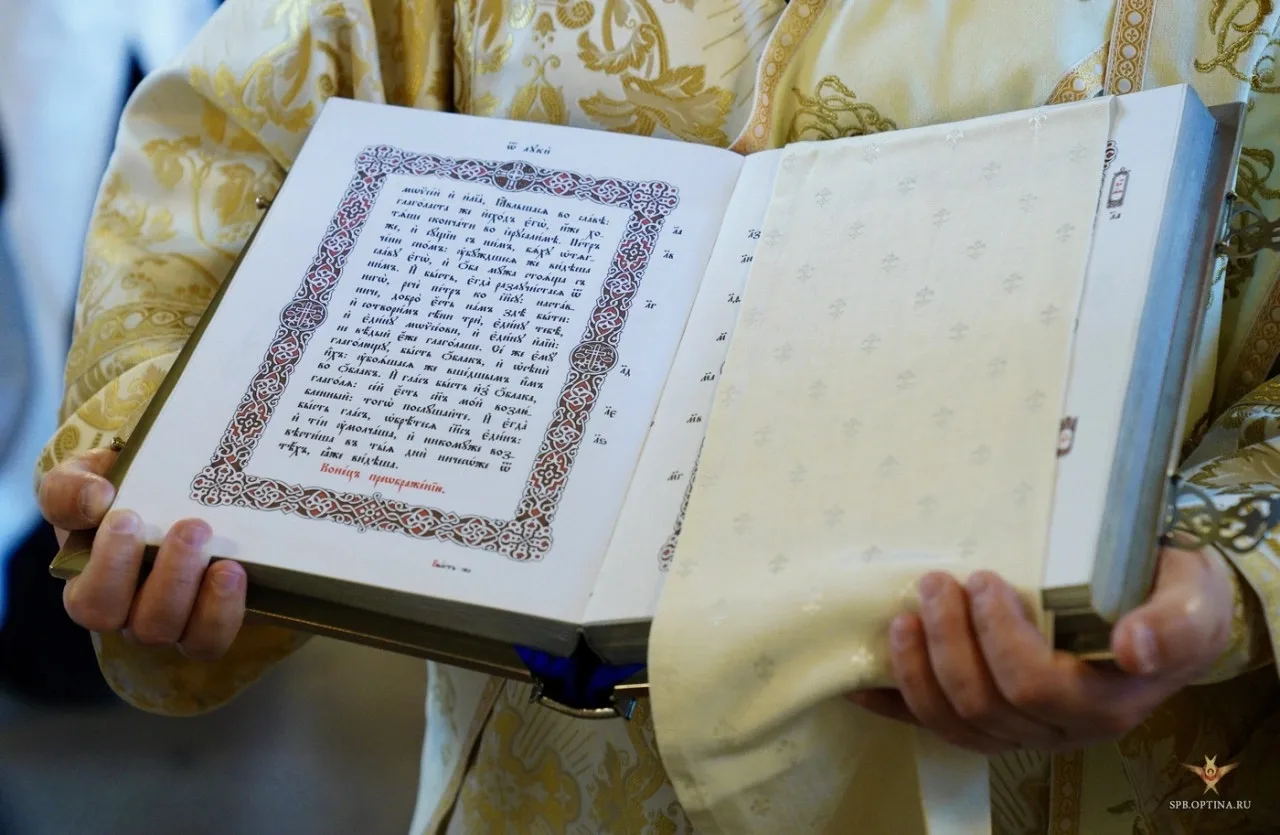 ѿ лꙋкѝ
мѡѷсе́й и҆ и҆лїа̀, Ꙗ҆́вльшасѧ во сла́вѣ:
глаго́ласта же и҆схо́дъ є҆гѡ̀, хо-
тѧ́ше сконча́ти во і҆ерⷭ҇ли́мѣ. Пе́тръ ла
же, и҆ сꙋ́щїи съ ни́мъ, бѧ́хꙋ ѡ҆тѧг- лв
че́ни сно́мъ: ᲂу҆бꙋ́ждшесѧ же ви́дѣша
сла́вꙋ є҆гѡ̀, и҆ ѻ҆́ба мꙋ̑жа стоѧ̑ща съ
ни́мъ. И҆ бы́сть, є҆гда̀ разлꙋчи́стасѧ ѿ лг
негѡ̀, речѐ пе́тръ ко і҆и҃сꙋ: наста́в-
ниче, добро̀ є҆́сть на́мъ здѣ̀ бы́ти:
и҆ сотвори́мъ сѣ̑ни трѝ, є҆ди́нꙋ тебѣ̀,
и҆ є҆ди́нꙋ мѡѷсе́ови, и҆ є҆ди́нꙋ и҆лїѝ:
не вѣ́дый є҆́же глаго́лаше. Сїѧ̑ же є҆мꙋ̀ лд
глаго́лющꙋ, бы́сть ѻ҆́блакъ, и҆ ѡ҆сѣнѝ
и҆̀хъ: ᲂу҆боѧ́шасѧ же вше́дшымъ и҆̀мъ
во ѻ҆́блакъ. И҆ гла́съ бы́сть и҆з̾ ѻ҆́блака, ле
глаго́лѧ: се́й є҆́сть сн҃ъ мо́й возлю́-
бленный: тогѡ̀ послꙋ́шайте. И҆ є҆гда̀ лѕ
бы́сть гла́съ, ѡ҆брѣ́тесѧ і҆и҃съ є҆ди́нъ:
и҆ ті́и ᲂу҆молча́ша, и҆ никомꙋ́же воз-
вѣсти́ша въ ты̑ѧ дни̑ ничесѡ́же ѿ
тѣ́хъ, ꙗ҆̀же ви́дѣша.
Коне́цъ преѡбраже́нїю.
SPB.OPTINA.RU